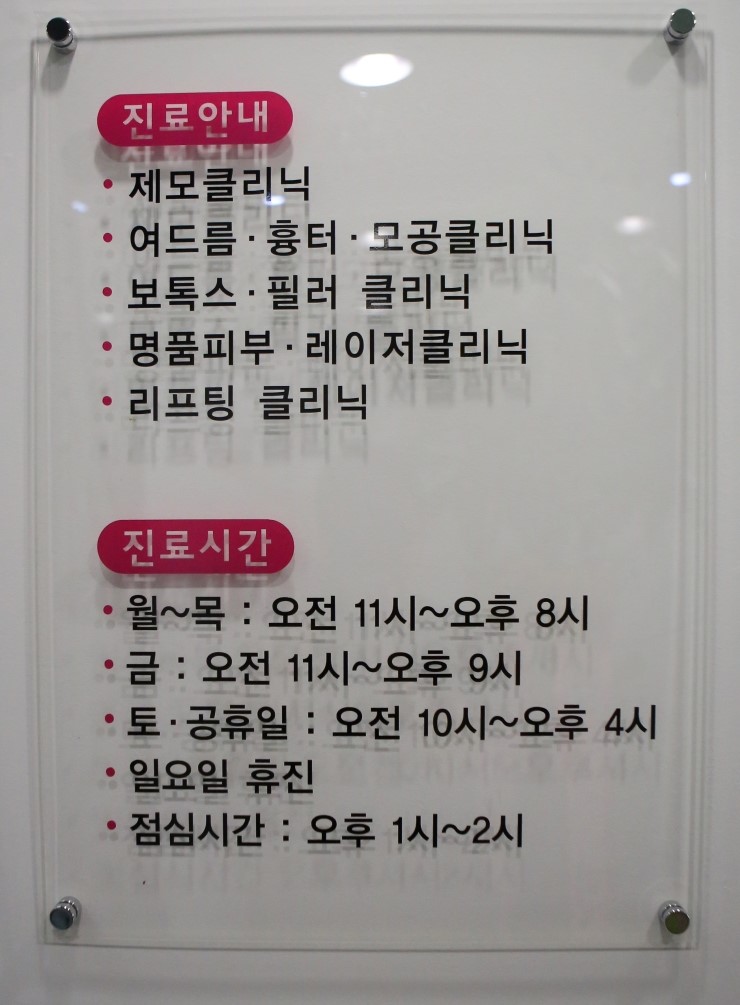 진료안내
• 제모클리닉
• 여드름·흉터·모공클리닉
• 보톡스·필러 클리닉
• 명품피부·레이저클리닉
• 리프팅 클리닉
진료시간
• 월~목 : 오전 11시~오후 8시
• 금 : 오전 11시~오후 9시
• 토·공휴일 : 오전 10시~오후 4시
• 일요일 휴진
• 점심시간 : 오후 1시~2시